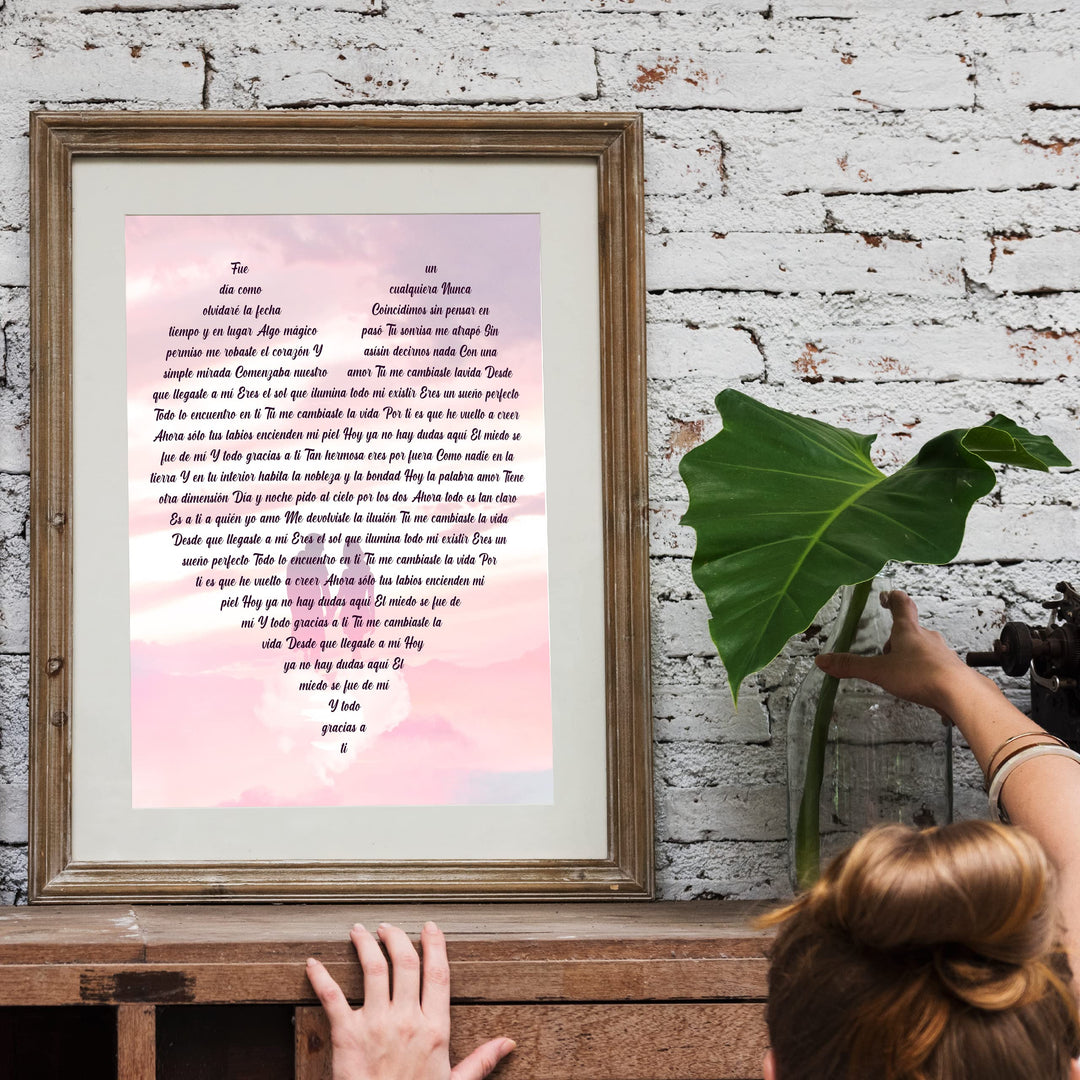 Fue un
día como cualquiera Nunca
olvidaré la fecha Coincidimos sin pensar en
tiempo y en lugar Algo mágico pasó Tu sonrisa me atrapó Sin
permiso me robaste el corazón Y asísin decirnos nada Con una
simple mirada Comenzaba nuestro amor Tu me cambiaste lavida Desde
que llegaste a mí Eres el sol que ilumina todo mi existir Eres un sueño perfecto
Todo lo encuentro en ti Tu me cambiaste la vida Por ti es que he vuelto a creer
Ahora sólo tus labios encienden mi piel Hoy ya no hay dudas aquí El miedo se
fue de mí Y todo gracias a ti Tan hermosa eres por fuera Como nadie en la
tierra Y en tu interior habita la nobleza y la bondad Hoy la palabra amor Tiene
otra dimensión Día y noche pido al cielo por los dos Ahora todo es tan claro
Es a ti a quién yo amo Me devolviste la ilusión Tu me cambiaste la vida
Desde que llegaste a mí Eres el sol que ilumina todo mi existir Eres un
sueño perfecto Todo lo encuentro en ti Tu me cambiaste la vida Por
ti es que he vuelto a creer Ahora sólo tus labios encienden mi
piel Hoy ya no hay dudas aquí El miedo se fue de
mí Y todo gracias a ti Tu me cambiaste la
vida Desde que llegaste a mí Hoy
ya no hay dudas aquí El
miedo se fue de mí
Y todo
gracias a
ti